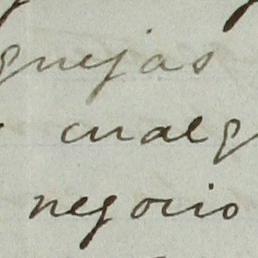 quejas
cualq
negocio